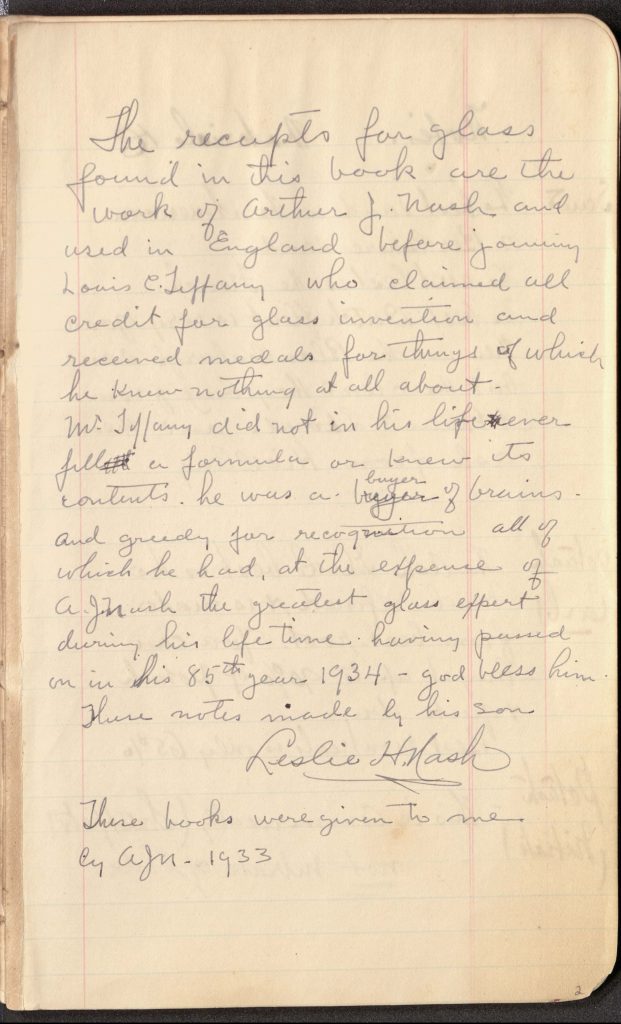 The recupts for glass
found in this book are the
work of Arthur J. Nash and
used in England before joining
Louis C. Tiffany who claimed all
credit for glass invention and
received medals for things of which
he knew nothing at all about -
Mr Tiffany did not in his life ever
fill a formula or knew its
contents. he was a buyer of brains -
and greedy for recognition all of
which he had, at the expense of
A. J Nash the greatest glass expert
during his life time. having passed
on in his 85th year 1934 - god bless him.
These notes made by his son
Leslie H. Nash
These books were given to me
by AJN - 1933
2